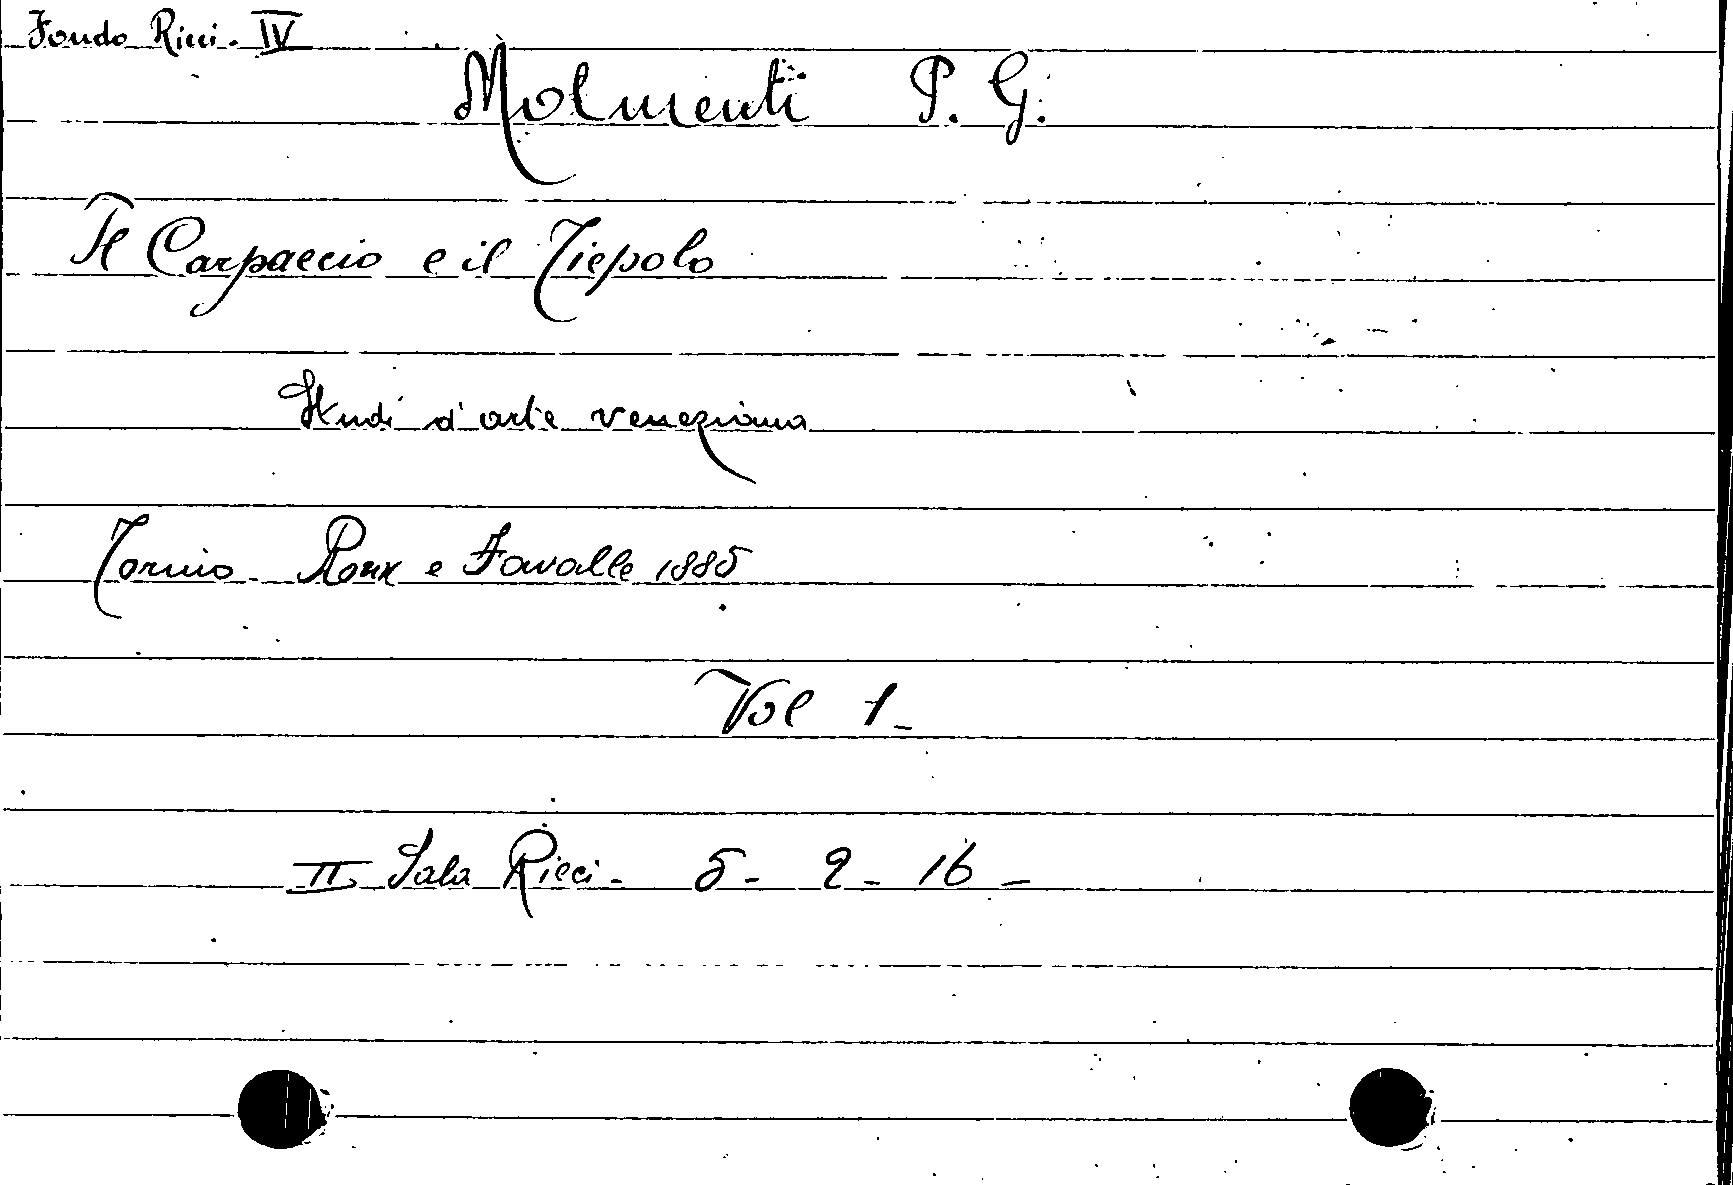 Fondo Ricci. IV
Molmenti P. G.
Il Carpaccio e il Tiepolo
Studi d'arte veneziana
Torino Roux e Favalle 1885
Vol 1_
II Sala Ricci - 5 - 2 - 16 -